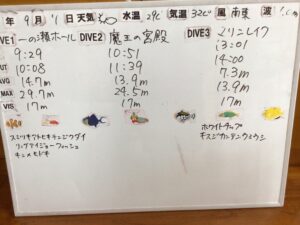 年 9月 1日 天気 水温 29℃ 気温 32℃ 風 南東 波
DIVE1 一の瀬ホール DIVE2 魔王の宮殿 DIVE3 マリンレイク
9:29 10:51 13:01
OUT 10:08 11:39 14:00
AVG 14.7m 13.9m 7.3m
MAX 29.7m 24.5m 13.9m
VIS 17m 17m 17m
スミツキアトヒキテンジクダイ ホワイトチップ
リングアイジョーフィッシュ モスジカンテンウミウシ
キンメモドキ